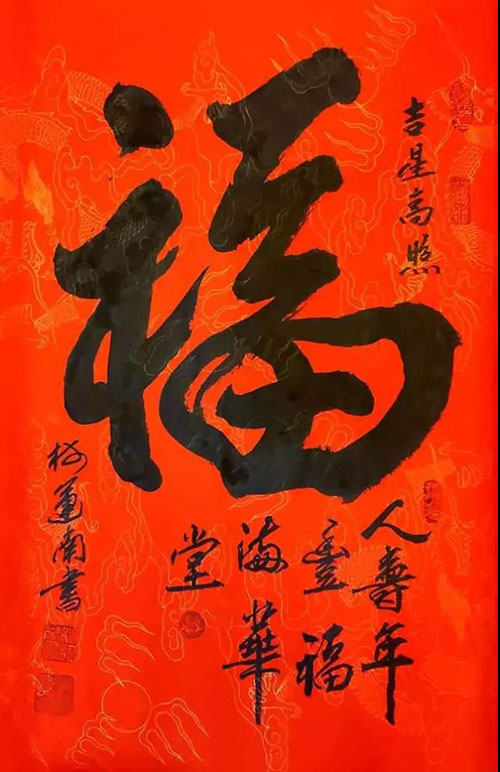 吉星高照
福
人壽年
豐福
滿華
堂
南書